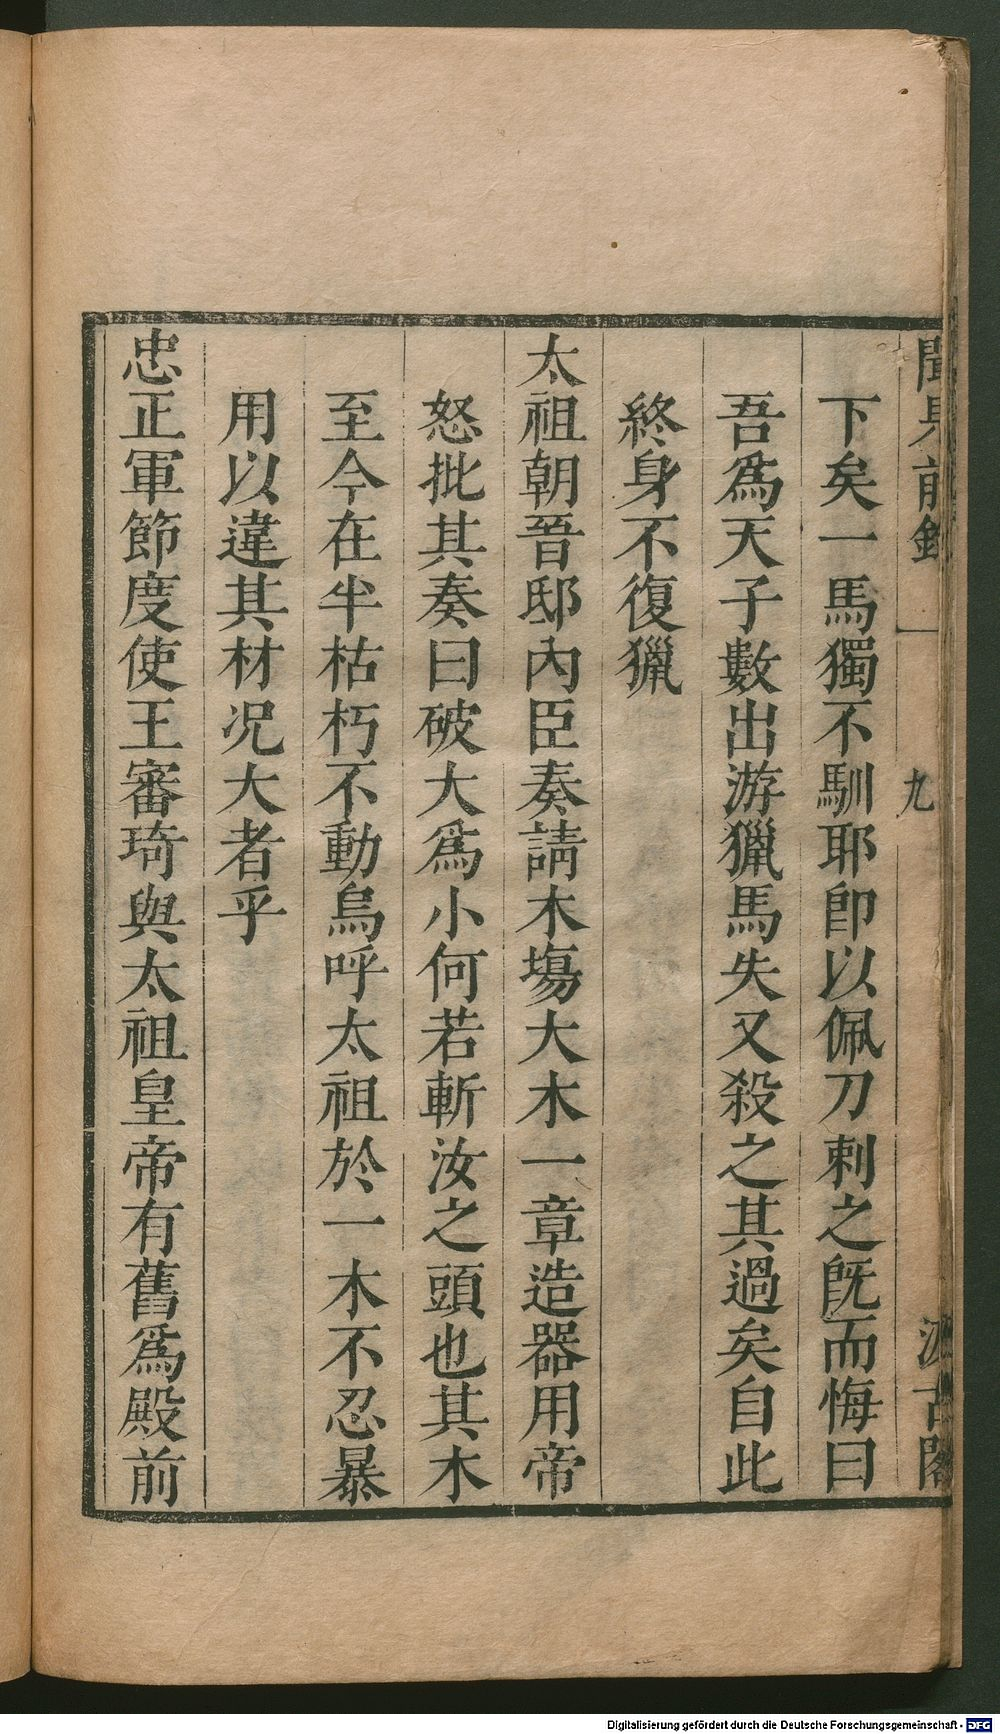 聞見前錄 一 九 汲古閣
下矣一馬獨不馴耶卽以佩刀刺之旣而悔曰
吾爲天子數出游獵馬失又殺之其過矣自此
終身不復獵
太祖朝晉邸內臣奏請木塲大木一章造器用帝
怒批其奏曰破大爲小何若斬汝之頭也其木
至今在半枯朽不動烏呼太祖於一木不忍暴
用以違其材况大者乎
忠正軍節度使王審琦與太祖皇帝有舊爲殿前
Digitalisierung gefördert durch die Deutsche Forschungsgemeinschaft - DFG